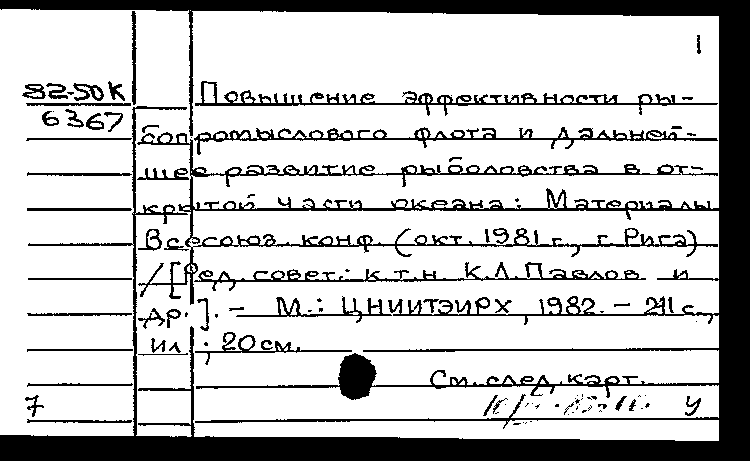 1
82-50К Повышение эффективности ры-
6367 бопромыслового флота и дальней-
шее развитие рыболовства в от-
крытой части океана: Материалы
Всесоюз. конф. (окт. 1981 г., г. Рига)
/ [Ред. совет.: к.т.н К.Л. Павлов и
др.]. - М.: ЦНИИТЭИРХ, 1982. - 241 с.,
ил ; 20 см.
См. след. карт.
7 У